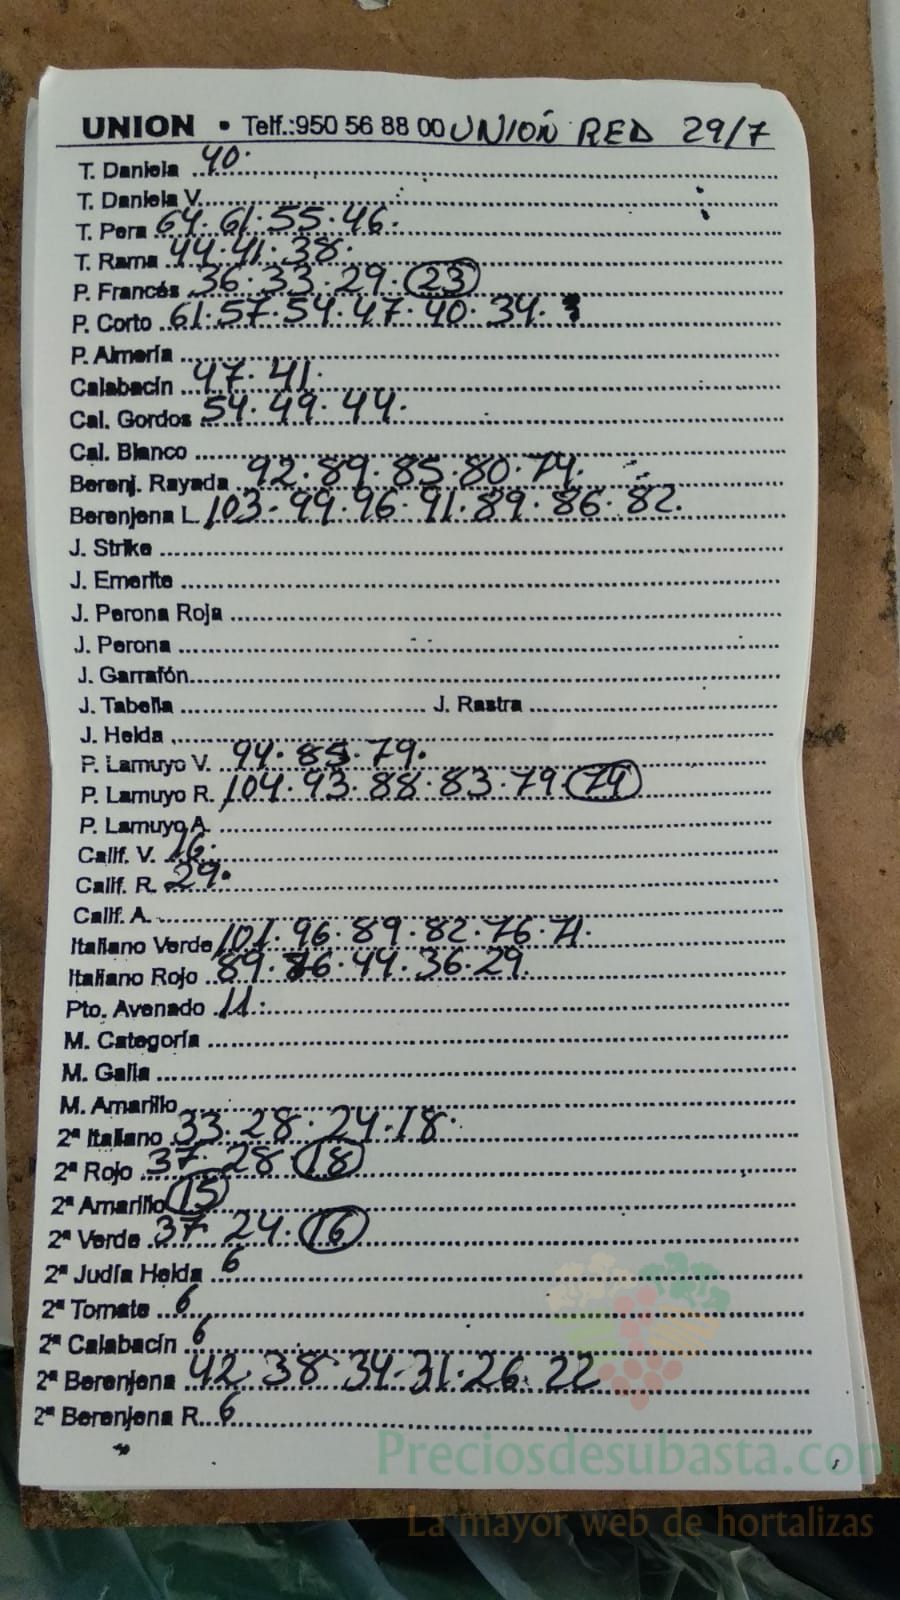 UNION • Telf.:950 56 88 00 UNIOÑ RED 29/7
T. Daniela 40.
T. Daniela V.
T. Pera 64.61.55.46.
T. Rama 44.41.38.
P. Francés 36.33.29.23
P. Corto 61.57.54.47.40.34.
P. Almería
Calabacín 47.41.
Cal. Gordos 54.49.44.
Cal. Blanco
Berenj. Rayada 92.89.85.80.74.
Berenjena L. 103.99.96.91.89.86.82.
J. Strike
J. Emerite
J. Perona Roja
J. Perona
J. Garrafón
J. Tabella J. Rastra
J. Helda
P. Lamuyo V. 94.85.79.
P. Lamuyo R. 104.93.88.83.79.74
P. Lamuyo A.
Calif. V. 16.
Calif. R. 29.
Calif. A.
Italiano Verde 101.96.89.82.76.71.
Italiano Rojo 89.86.44.36.29.
Pto. Avenado 11.
M. Categoría
M. Galia
M. Amarillo
2ª Italiano 33.28.24.18.
2ª Rojo 37.28.18
2ª Amarillo 15
2ª Verde 37.24.16
2ª Judía Helda 6
2ª Tomate 6
2ª Calabacín 6
2ª Berenjena 42.38.34.31.26.22
2ª Berenjena R. 6
Preciosdesubasta.com
La mayor web de hortalizas